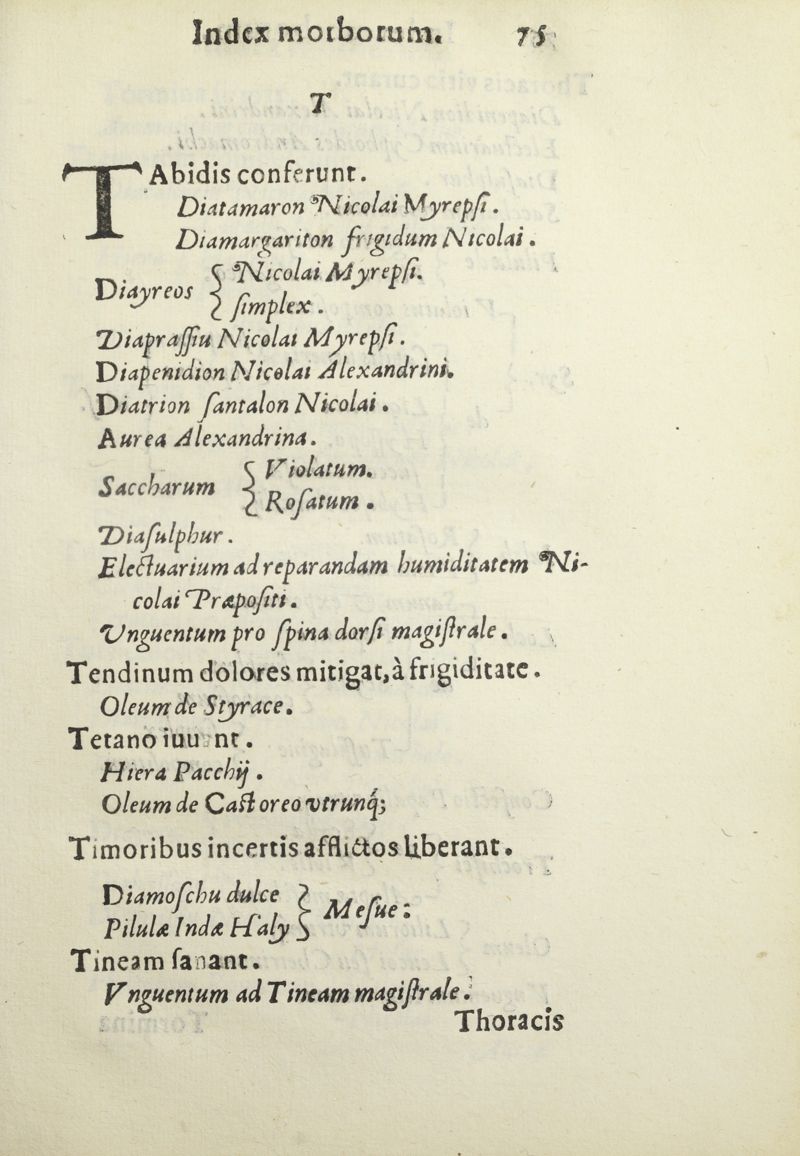 Index morborum. 75
T
TAbidis conferunt.
Diatamaron Nicolai Myrepſi.
Diamargariton frigidum Nicolai.
Diayreos { Nicolai Myrepſi.
ſimplex.
Diapraſſiu Nicolai Myrepſi.
Diapenidion Nicolai Alexandrini.
Diatrion ſantalon Nicolai.
Aurea Alexandrina.
Saccharum { Violatum.
Roſatum.
Diaſulphur.
Electuarium ad reparandam humiditatem Ni-
colai Præpoſiti.
Vnguentum pro ſpina dorſi magiſtrale.
Tendinum dolores mitigat, à frigiditate.
Oleum de Styrace.
Tetano iuuant.
Hiera Pacchij.
Oleum de Caſtoreo vtrunq́;
Timoribus incertis afflictos liberant.
Diamoſchu dulce } Meſue:
Pilulæ Indæ Haly
Tineam ſanant.
Vnguentum ad Tineam magiſtrale.
Thoracis